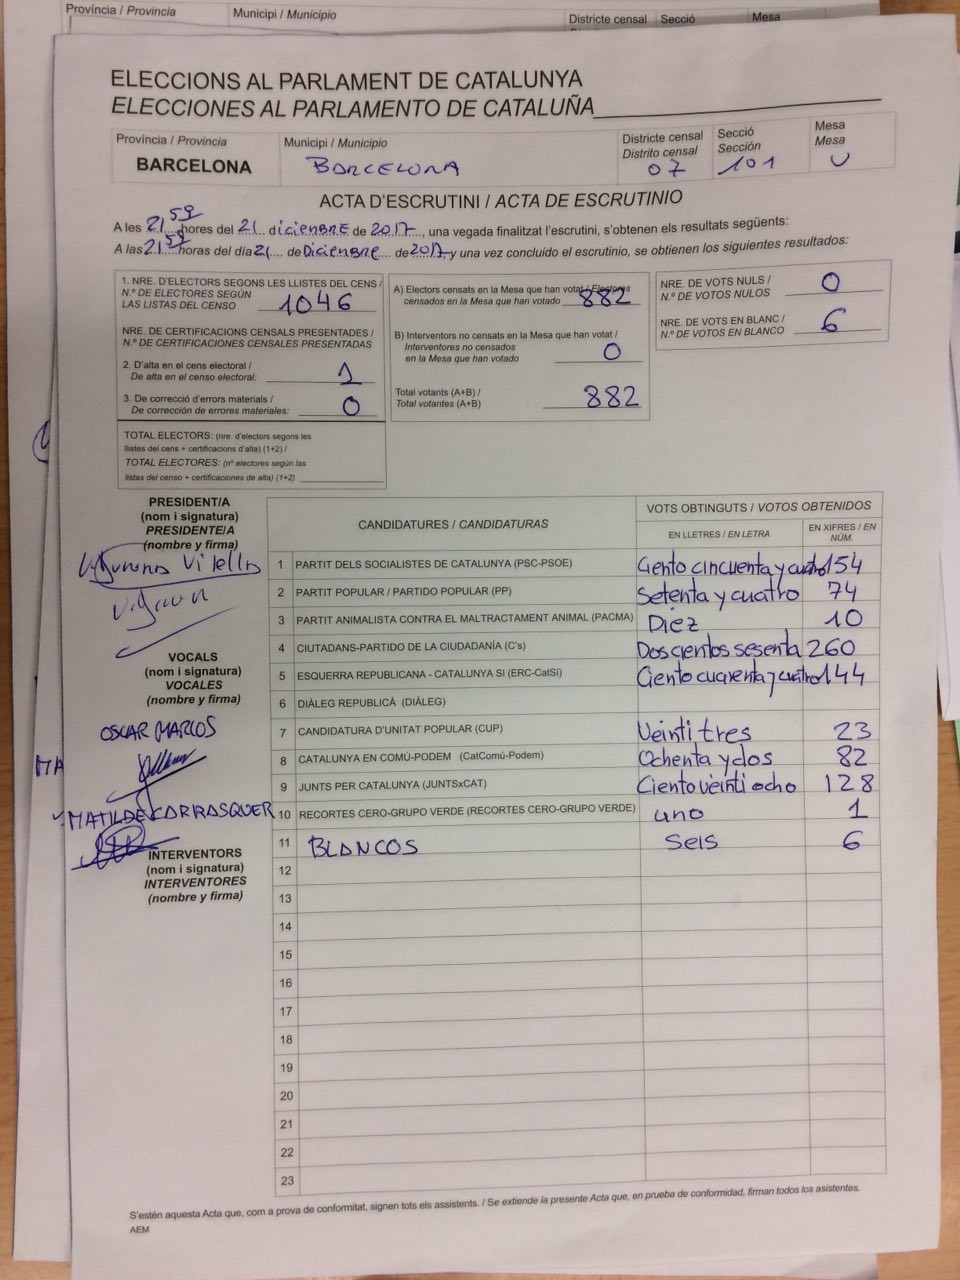 Província / Provincia Municipi / Municipio Districte censal Secció Mesa
ELECCIONS AL PARLAMENT DE CATALUNYA
ELECCIONES AL PARLAMENTO DE CATALUÑA
Província / Provincia Municipi / Municipio Districte censal Distrito censal Secció Sección Mesa Mesa
BARCELONA BARCELONA 07 101 U
ACTA D'ESCRUTINI / ACTA DE ESCRUTINIO
A les 21 59 hores del 21 diciembre de 2017, una vegada finalitzat l'escrutini, s'obtenen els resultats següents:
A las 21 59 horas del día 21 de Diciembre de 2017 y una vez concluido el escrutinio, se obtienen los siguientes resultados:
1. NRE. D'ELECTORS SEGONS LES LLISTES DEL CENS /
N.º DE ELECTORES SEGÚN
LAS LISTAS DEL CENSO 1046
NRE. DE CERTIFICACIONS CENSALS PRESENTADES /
N.º DE CERTIFICACIONES CENSALES PRESENTADAS
2. D'alta en el cens electoral /
De alta en el censo electoral: 1
3. De correcció d'errors materials /
De corrección de errores materiales: 0
TOTAL ELECTORS: (nre. d'electors segons les
llistes del cens + certificacions d'alta) (1+2) /
TOTAL ELECTORES: (nº electores según las
listas del censo + certificaciones de alta) (1+2)
A) Electors censats en la Mesa que han votat / Electores
censados en la Mesa que han votado 882
B) Interventors no censats en la Mesa que han votat /
Interventores no censados
en la Mesa que han votado 0
Total votants (A+B) /
Total votantes (A+B) 882
NRE. DE VOTS NULS /
N.º DE VOTOS NULOS 0
NRE. DE VOTS EN BLANC /
N.º DE VOTOS EN BLANCO 6
PRESIDENT/A
(nom i signatura)
PRESIDENTE/A
(nombre y firma)
Vilella
VOCALS
(nom i signatura)
VOCALES
(nombre y firma)
OSCAR MARCOS
MA
MATILDE CARRASQUER
INTERVENTORS
(nom i signatura)
INTERVENTORES
(nombre y firma)
CANDIDATURES / CANDIDATURAS VOTS OBTINGUTS / VOTOS OBTENIDOS
EN LLETRES / EN LETRA EN XIFRES / EN NÚM.
1 PARTIT DELS SOCIALISTES DE CATALUNYA (PSC-PSOE) Ciento cincuenta y cuatro 154
2 PARTIT POPULAR / PARTIDO POPULAR (PP) Setenta y cuatro 74
3 PARTIT ANIMALISTA CONTRA EL MALTRACTAMENT ANIMAL (PACMA) Diez 10
4 CIUTADANS-PARTIDO DE LA CIUDADANÍA (C's) Doscientos sesenta 260
5 ESQUERRA REPUBLICANA - CATALUNYA SI (ERC-CatSí) Ciento cuarenta y cuatro 144
6 DIÀLEG REPUBLICÀ (DIÀLEG)
7 CANDIDATURA D'UNITAT POPULAR (CUP) Veintitres 23
8 CATALUNYA EN COMÚ-PODEM (CatComú-Podem) Ochenta y dos 82
9 JUNTS PER CATALUNYA (JUNTSxCAT) Ciento veintiocho 128
10 RECORTES CERO-GRUPO VERDE (RECORTES CERO-GRUPO VERDE) uno 1
11 BLANCOS seis 6
12
13
14
15
16
17
18
19
20
21
22
23
S'estén aquesta Acta que, com a prova de conformitat, signen tots els assistents. / Se extiende la presente Acta que, en prueba de conformidad, firman todos los asistentes.
AEM